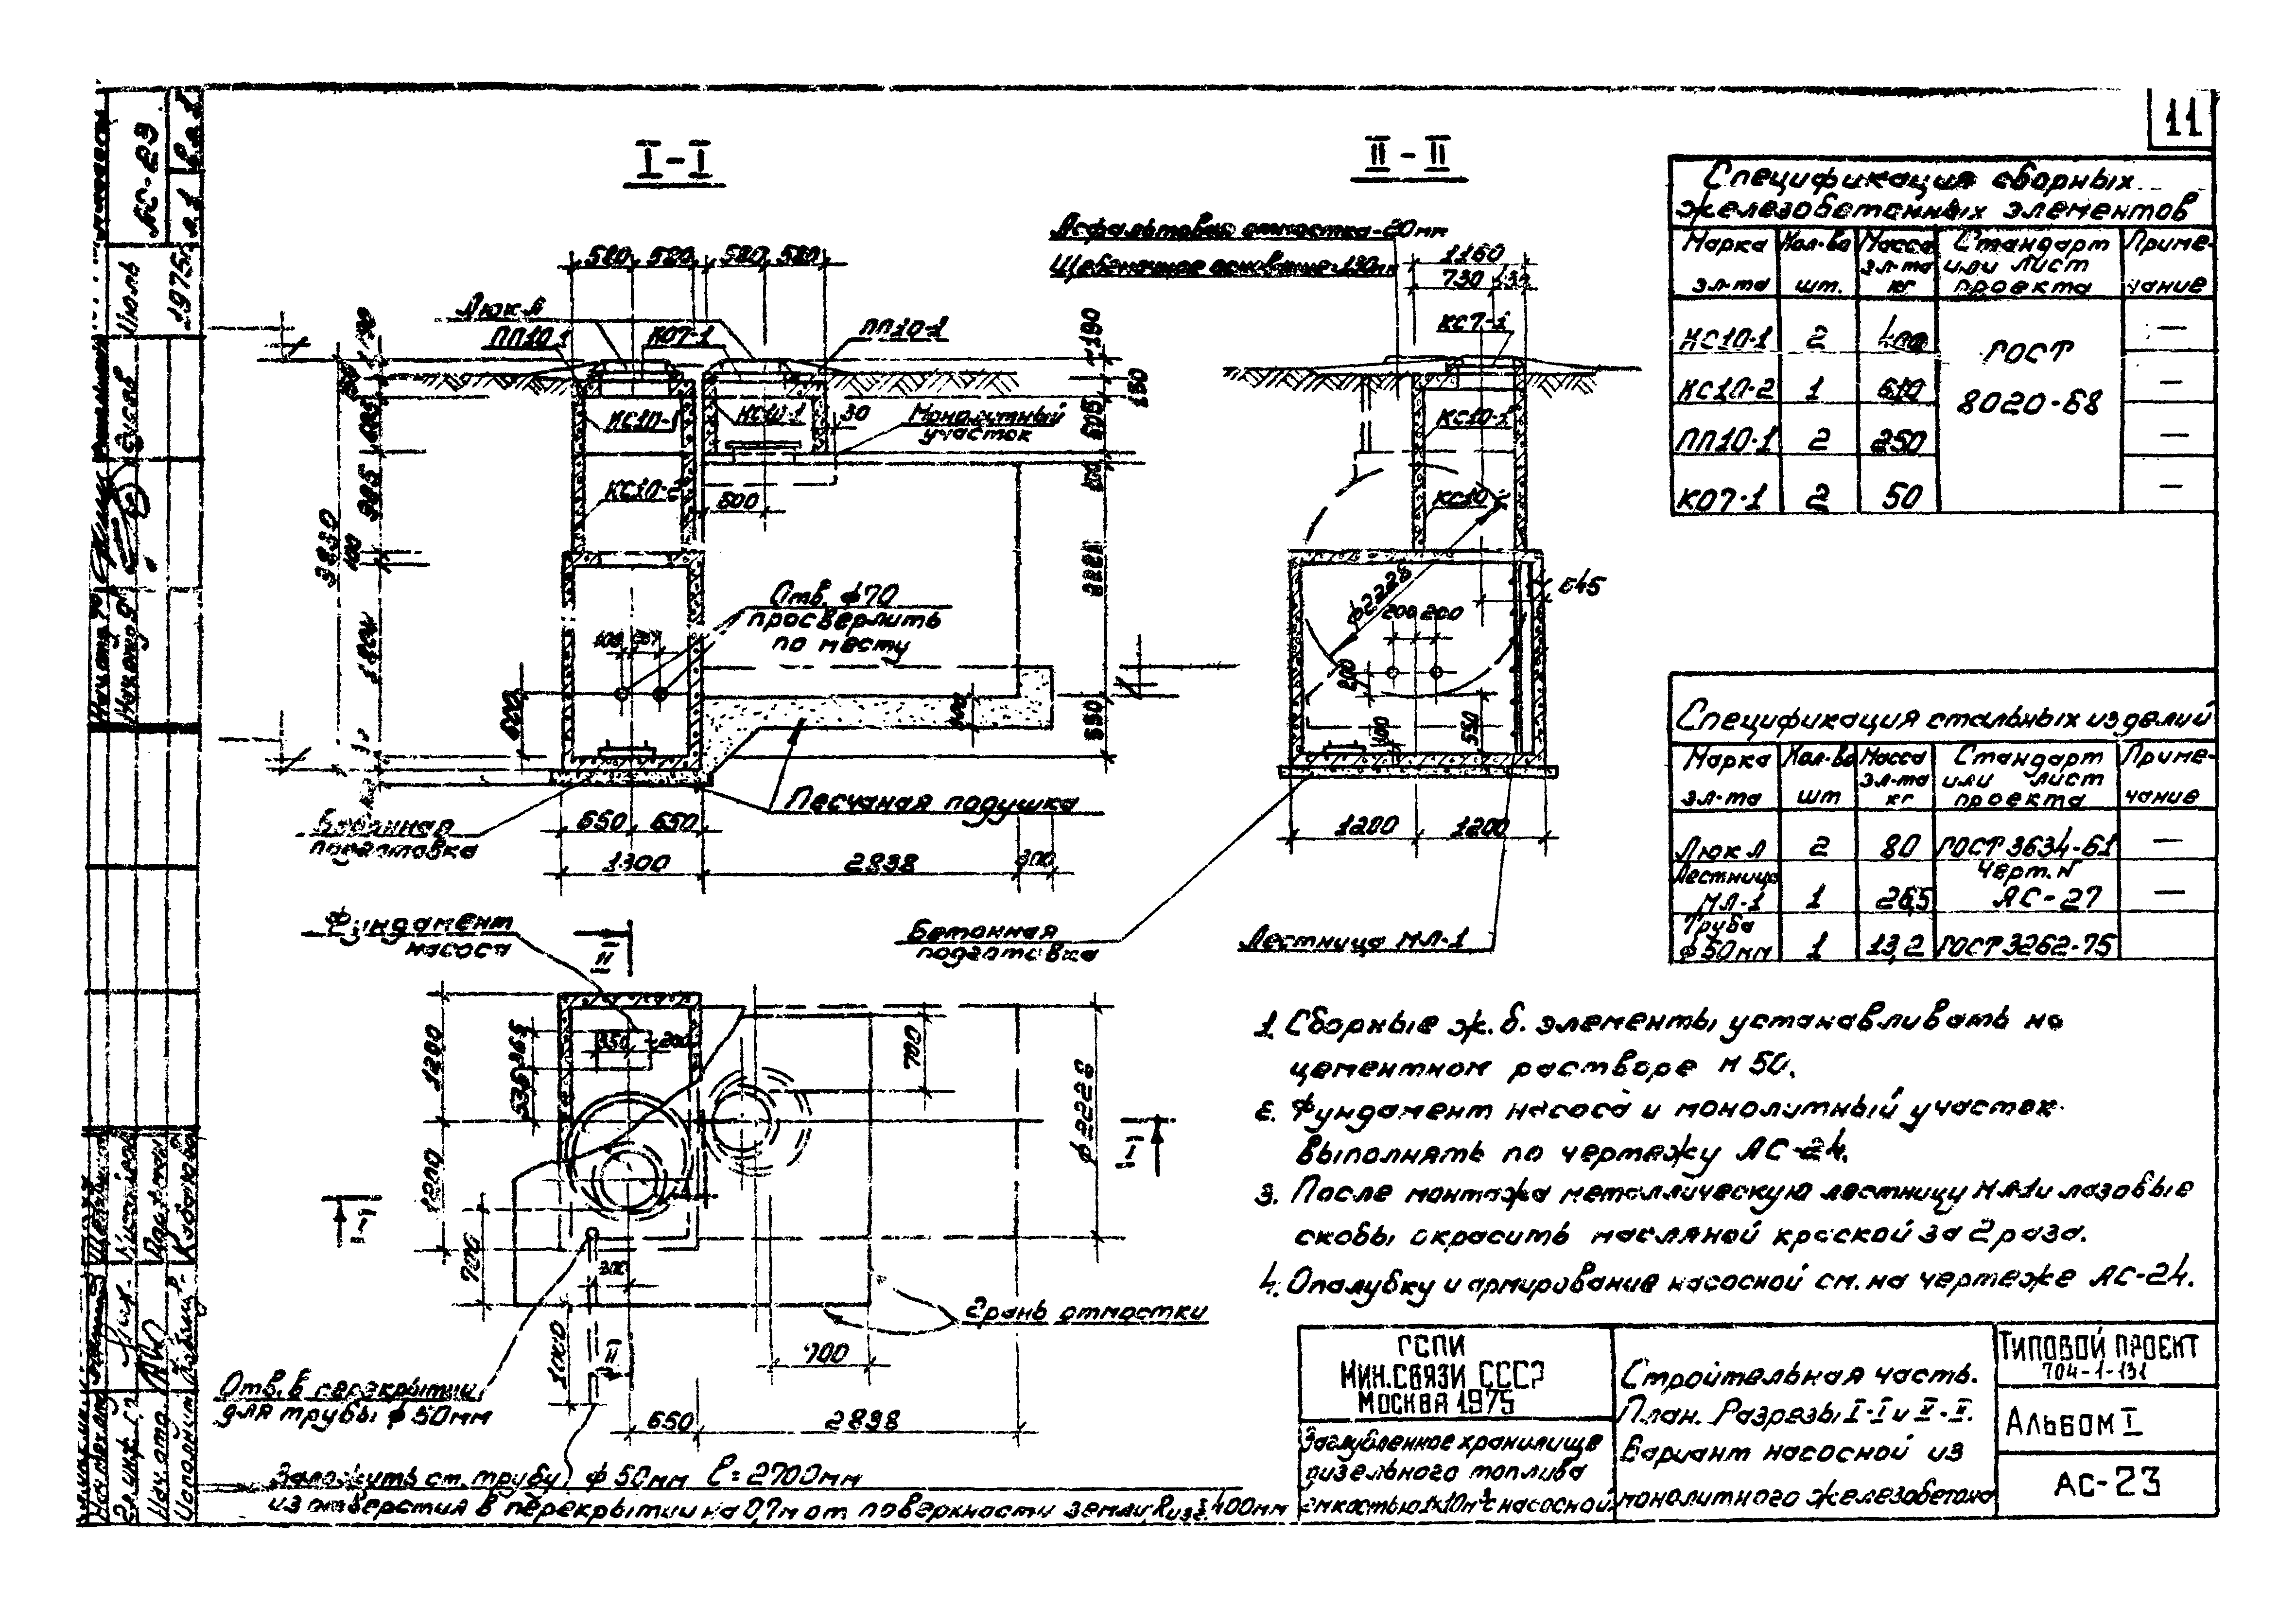 11
I-I
II-II
Асфальтовая отмостка-20мм
Щебеночное основание-130мм
580 580 580 580
1160
730
Люк-Л
ПП10-1
КО7-1
ПП10-1
КС7-1
КС10-1
КС10-1
30
Монолитный
участок
КС10-1
КС10-2
600
~190
150
605
100
2221
550
3830
100
Отв. ф70
просверлить
по месту
600
ф2228
200 200
200
100
550
645
Песчаная подушка
Бетонная
подготовка
650 650
1300
2838
300
1200 1200
Бетонная
подготовка
Лестница МЛ-1
Фундамент
насоса
II
1200
365
535
350
200
1200
700
700
ф2228
I
I
300
1000
II
Грань отмостки
700
650
2838
Отв. в перекрытии
для трубы ф50мм
Заложить ст. трубу ф50мм ℓ=2700мм
из отверстия в перекрытии на 0,7м от поверхности земли, Rизг. 400мм
Спецификация сборных
железобетонных элементов
Марка эл-та Кол-во шт. Масса эл-та кг Стандарт или лист проекта Примечание
КС10-1 2 400 —
КС10-2 1 610 —
ГОСТ
8020-68
ПП10-1 2 250 —
КО7-1 2 50 —
Спецификация стальных изделий
Марка эл-та Кол-во шт Масса эл-та кг Стандарт или лист проекта Примечание
Люк Л 2 80 ГОСТ 3634-61 —
Лестница МЛ-1 1 26,5 Черт. N АС-27 —
Труба ф50мм 1 13,2 ГОСТ 3262-75
1. Сборные ж.б. элементы устанавливать на
цементном растворе М 50.
2. Фундамент насоса и монолитный участок
выполнять по чертежу АС-24.
3. После монтажа металлическую лестницу МЛ-1 и лазовые
скобы окрасить масляной краской за 2 раза.
4. Опалубку и армирование насосной см. на чертеже АС-24.
ГСПИ
МИН.СВЯЗИ СССР
МОСКВА 1975
Заглубленное хранилище
дизельного топлива
емкостью 1×10м³ с насосной
Строительная часть.
План. Разрезы I-I и II-II.
Вариант насосной из
монолитного железобетона
ТИПОВОЙ ПРОЕКТ
704-1-131
АЛЬБОМ I
АС-23
АС-23
Июль
1975г